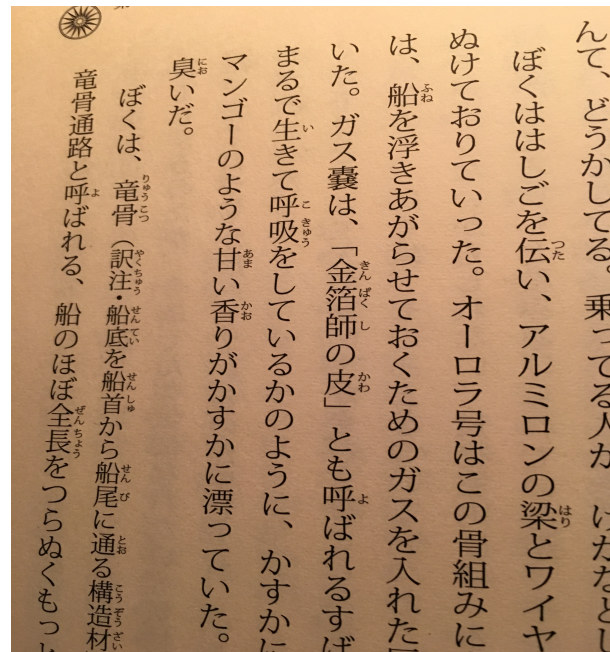 んて、どうかしてる。乗ってる人が
ぼくははしごを伝い、アルミロンの梁とワイヤ
ぬけておりていった。オーロラ号はこの骨組みに
は、船を浮きあがらせておくためのガスを入れた
いた。ガス嚢は、「金箔師の皮」とも呼ばれるすば
まるで生きて呼吸をしているかのように、かすかに
マンゴーのような甘い香りがかすかに漂っていた。
臭いだ。
ぼくは、竜骨（訳注・船底を船首から船尾に通る構造材
竜骨通路と呼ばれる、船のほぼ全長をつらぬくもっと